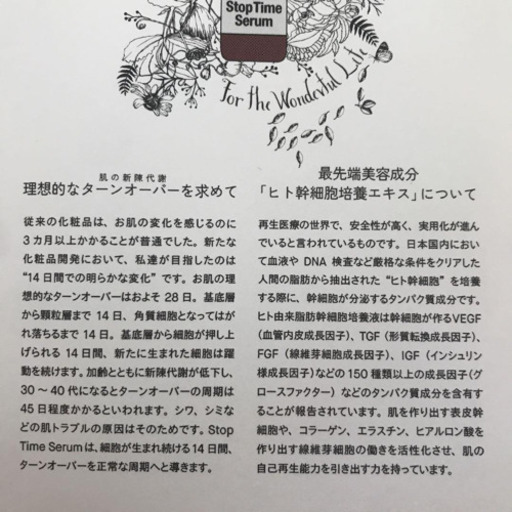 Stop Time
Serum
For the Wonderful Life
肌の新陳代謝
理想的なターンオーバーを求めて
従来の化粧品は、お肌の変化を感じるのに
3カ月以上かかることが普通でした。新たな
化粧品開発において、私達が目指したのは
“14日間での明らかな変化” です。お肌の理
想的なターンオーバーはおよそ 28日。基底層
から顆粒層まで 14日、角質細胞となってはが
れ落ちるまで 14日。基底層から細胞が押し上
げられる 14日間、新たに生まれた細胞は躍
動を続けます。加齢とともに新陳代謝が低下し、
30～40代になるとターンオーバーの周期は
45日程度かかるといわれます。シワ、シミな
どの肌トラブルの原因はそのためです。Stop
Time Serumは、細胞が生まれ続ける14日間、
ターンオーバーを正常な周期へと導きます。
最先端美容成分
「ヒト幹細胞培養エキス」について
再生医療の世界で、安全性が高く、実用化が進ん
でいると言われているものです。日本国内におい
て血液や DNA 検査など厳格な条件をクリアした
人間の脂肪から抽出された “ヒト幹細胞” を培養
する際に、幹細胞が分泌するタンパク質成分です。
ヒト由来脂肪幹細胞培養液は幹細胞が作るVEGF
(血管内皮成長因子)、TGF (形質転換成長因子)、
FGF (線維芽細胞成長因子)、IGF (インシュリン
様成長因子)などの 150 種類以上の成長因子(グ
ロースファクター) などのタンパク質成分を含有す
ることが報告されています。肌を作り出す表皮幹
細胞や、コラーゲン、エラスチン、ヒアルロン酸を
作り出す線維芽細胞の働きを活性化させ、肌の
自己再生能力を引き出す力を持っています。